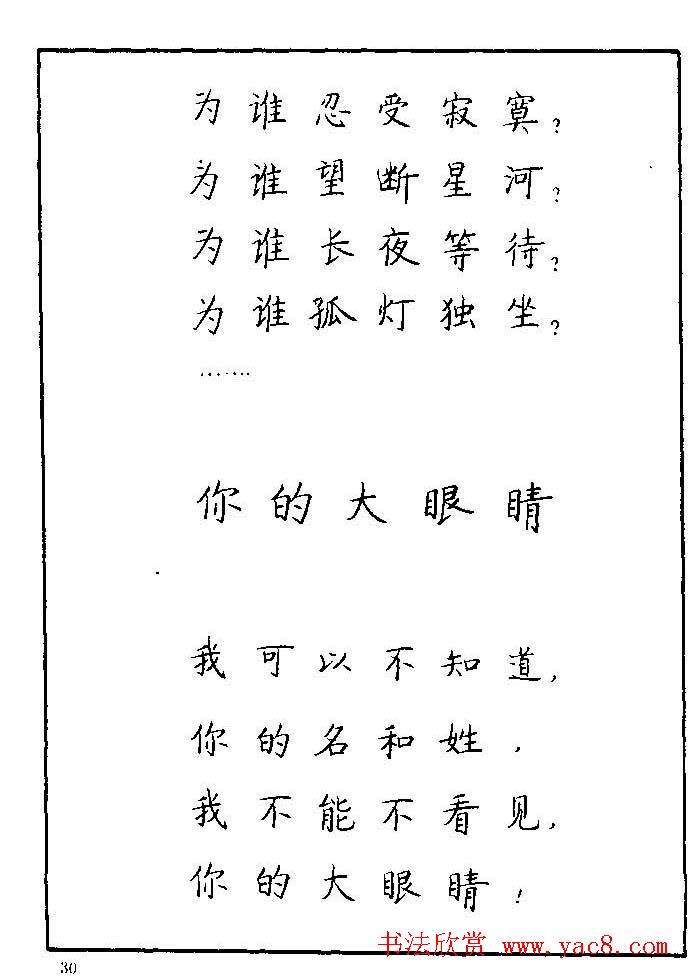 为谁忍受寂寞?
为谁望断星河?
为谁长夜等待?
为谁孤灯独坐?
.......
你的大眼睛
我可以不知道,
你的名和姓,
我不能不看见,
你的大眼睛!
书法欣赏 www.yac8.com
30